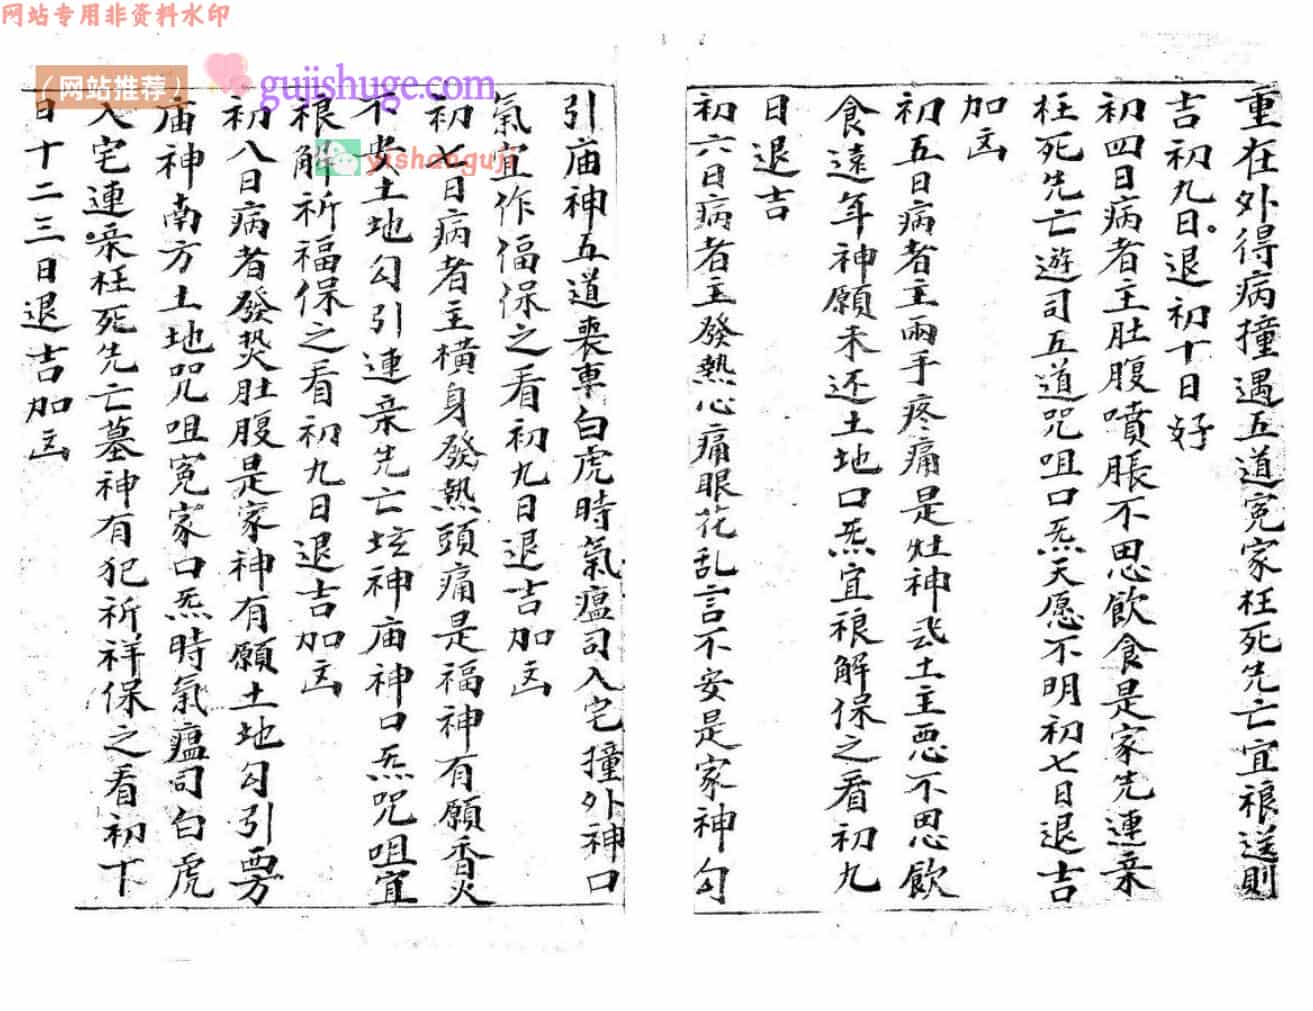 网站专用非资料水印
（网站推荐）
gujishuge.com
yishanguji
重在外得病撞遇五道冤家枉死先亡宜禳送則
吉初九日退初十日好
初四日病者主肚腹噴脹不思飲食是家先連亲
枉死先亡遊司五道咒咀口炁天愿不明初七日退吉
加凶
初五日病者主兩手疼痛是灶神武土主惡不思飲
食遠年神願未还土地口炁宜禳解保之看初九
日退吉
初六日病者主發熱心痛眼花乱言不安是家神勾
引庙神五道喪車白虎時氣瘟司入宅撞外神口
氣宜作福保之看初九日退吉加凶
初七日病者主横身發熱頭痛是福神有願香火
不安土地勾引連亲先亡坟神庙神口炁咒咀宜
禳解祈福保之看初九日退吉加凶
初八日病者發热肚腹是家神有願土地勾引西方
庙神南方土地咒咀冤家口炁時氣瘟司白虎
入宅連亲枉死先亡墓神有犯祈祥保之看初十
日十二三日退吉加凶